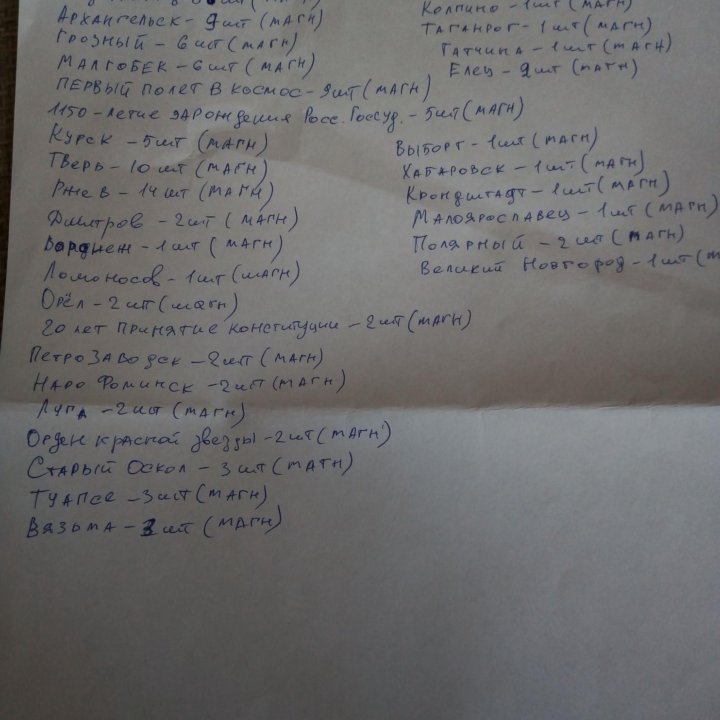 Архангельск - 9 шт (магн)
Грозный - 6 шт (магн)
Малгобек - 6 шт (магн)
Первый полет в космос - 9 шт (магн)
1150-летие зарождения Росс. Госсуд. - 5 шт (магн)
Курск - 5 шт (магн)
Тверь - 10 шт (магн)
Ржев - 14 шт (магн)
Дмитров - 2 шт (магн)
Воронеж - 1 шт (магн)
Ломоносов - 1 шт (магн)
Орёл - 2 шт (магн)
20 лет принятие конституции - 2 шт (магн)
Петрозаводск - 2 шт (магн)
Наро Фоминск - 2 шт (магн)
Луга - 2 шт (магн)
Орден красной звезды - 2 шт (магн)
Старый Оскол - 3 шт (магн)
Туапсе - 3 шт (магн)
Вязьма - 3 шт (магн)
Колпино - 1 шт (магн)
Таганрог - 1 шт (магн)
Гатчина - 1 шт (магн)
Елец - 9 шт (магн)
Выборг - 1 шт (магн)
Хабаровск - 1 шт (магн)
Кронштадт - 1 шт (магн)
Малоярославец - 1 шт (магн)
Полярный - 2 шт (магн)
Великий Новгород - 1 шт (м